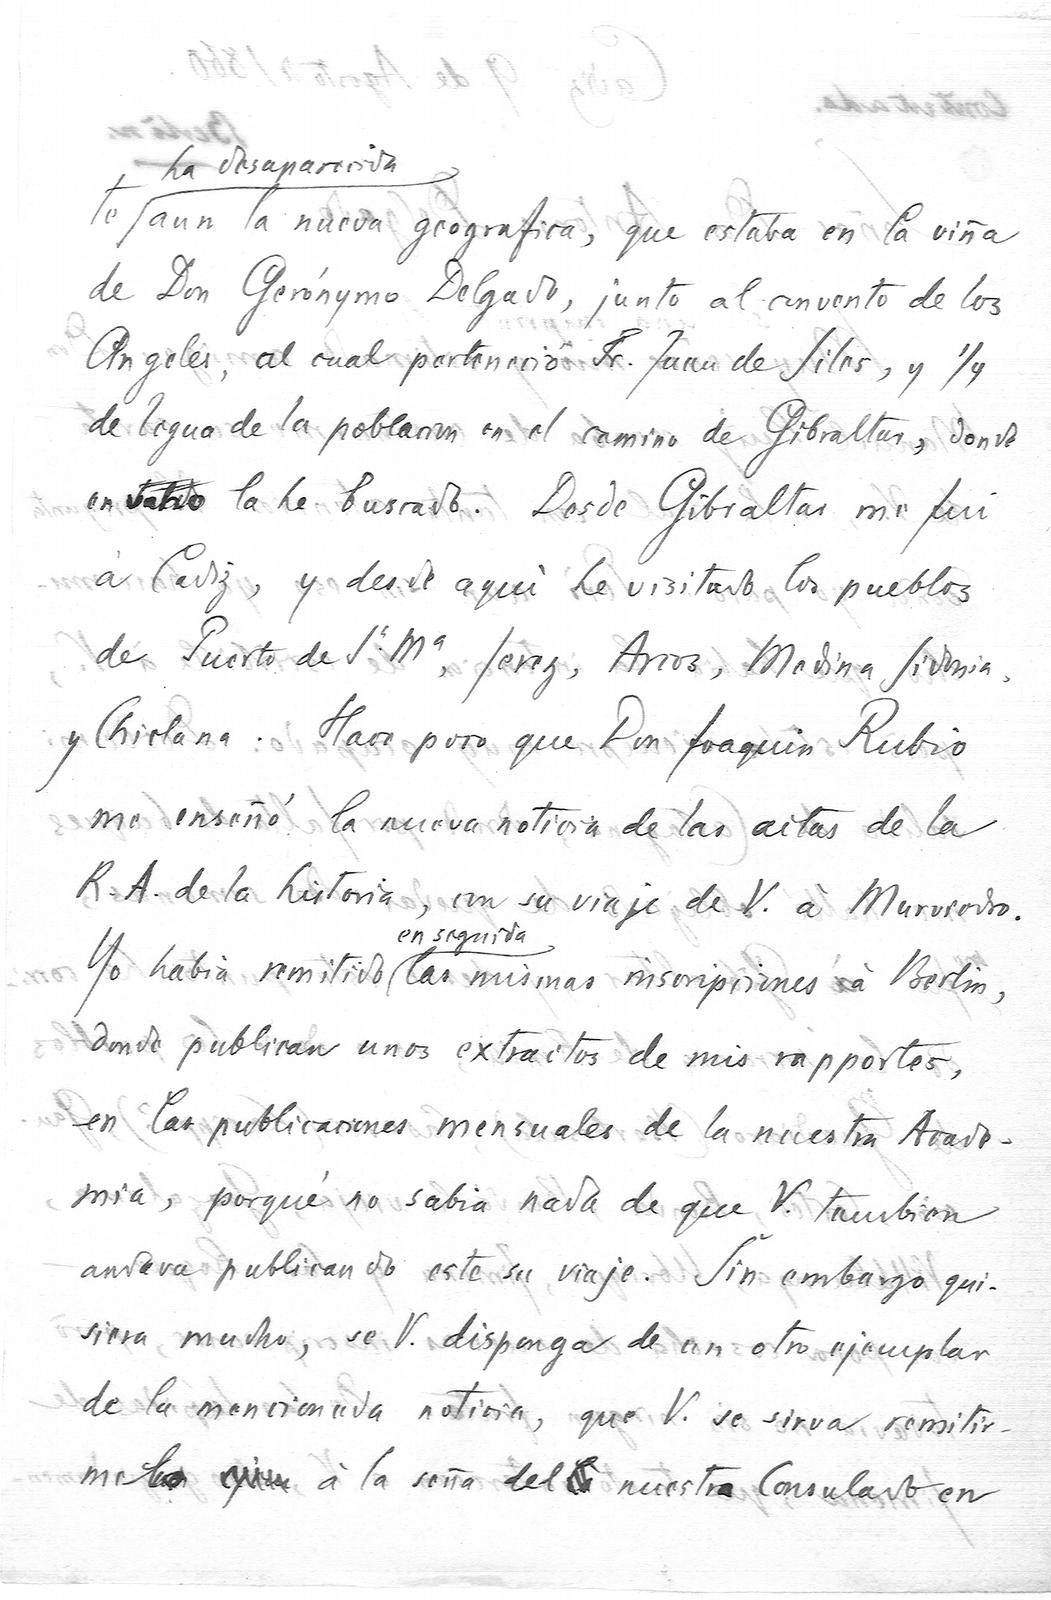 ha desaparecida
te aun la nueva geografica, que estaba en la viña
de Don Gerónymo Delgado, junto al convento de los
Angeles, al cual perteneció Fr. Juan de Siles, y 1/4
de legua de la poblacion en el camino de Gibraltar, donde
en valdo la he buscado. Desde Gibraltar me fui
à Cadiz, y desde aquì he visitado los pueblos
de Puerto de S.ᵗ Mª, Jerez, Arcos, Medina Sidonia,
y Chiclana. Hace poco que Don Joaquin Rubio
me enseñó la nueva noticia de las actas de la
R. A. de la historia, con su viaje de V. à Murviedro.
en seguida
Yo habia remitido las mismas inscripciones à Berlin,
donde publican unos extractos de mis rapportes,
en las publicaciones mensuales de la nuestra Acade-
mia, porqué no sabia nada de que V. tambien
andava publicando este su viaje. Sin embargo qui-
siera mucho, se V. disponga de un otro ejemplar
de la mencionada noticia, que V. se sirva remitir-
me à la seña del nuestro Consulado en